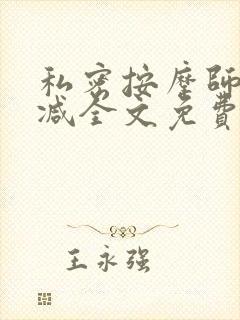 私密按摩師
减全文免費
王永强